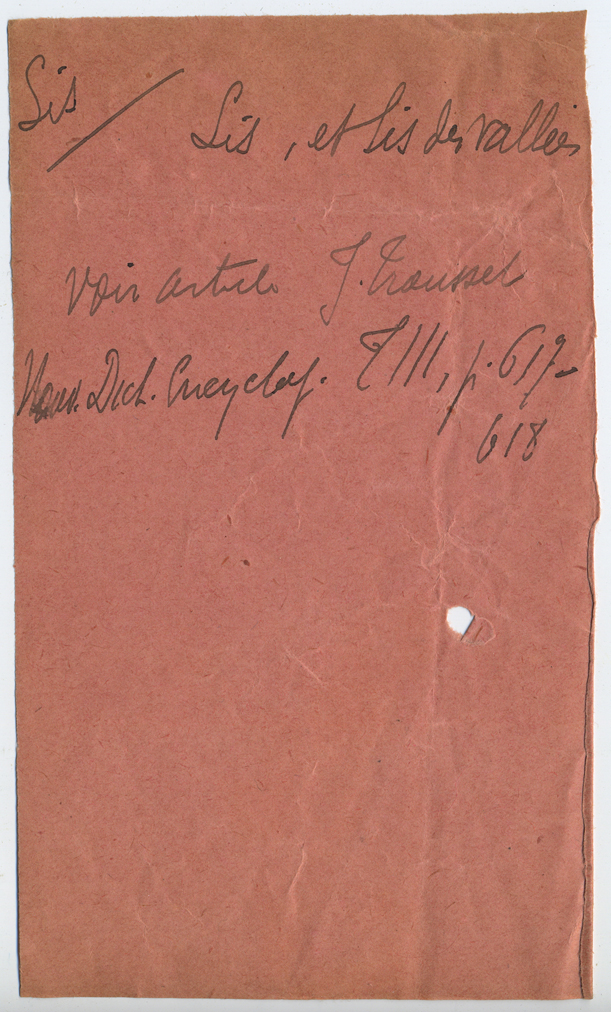 Lis
Lis, et Lis des vallées
Voir article J. Trousset
Nouv. Dict. Encyclop. T III, p. 617-
618